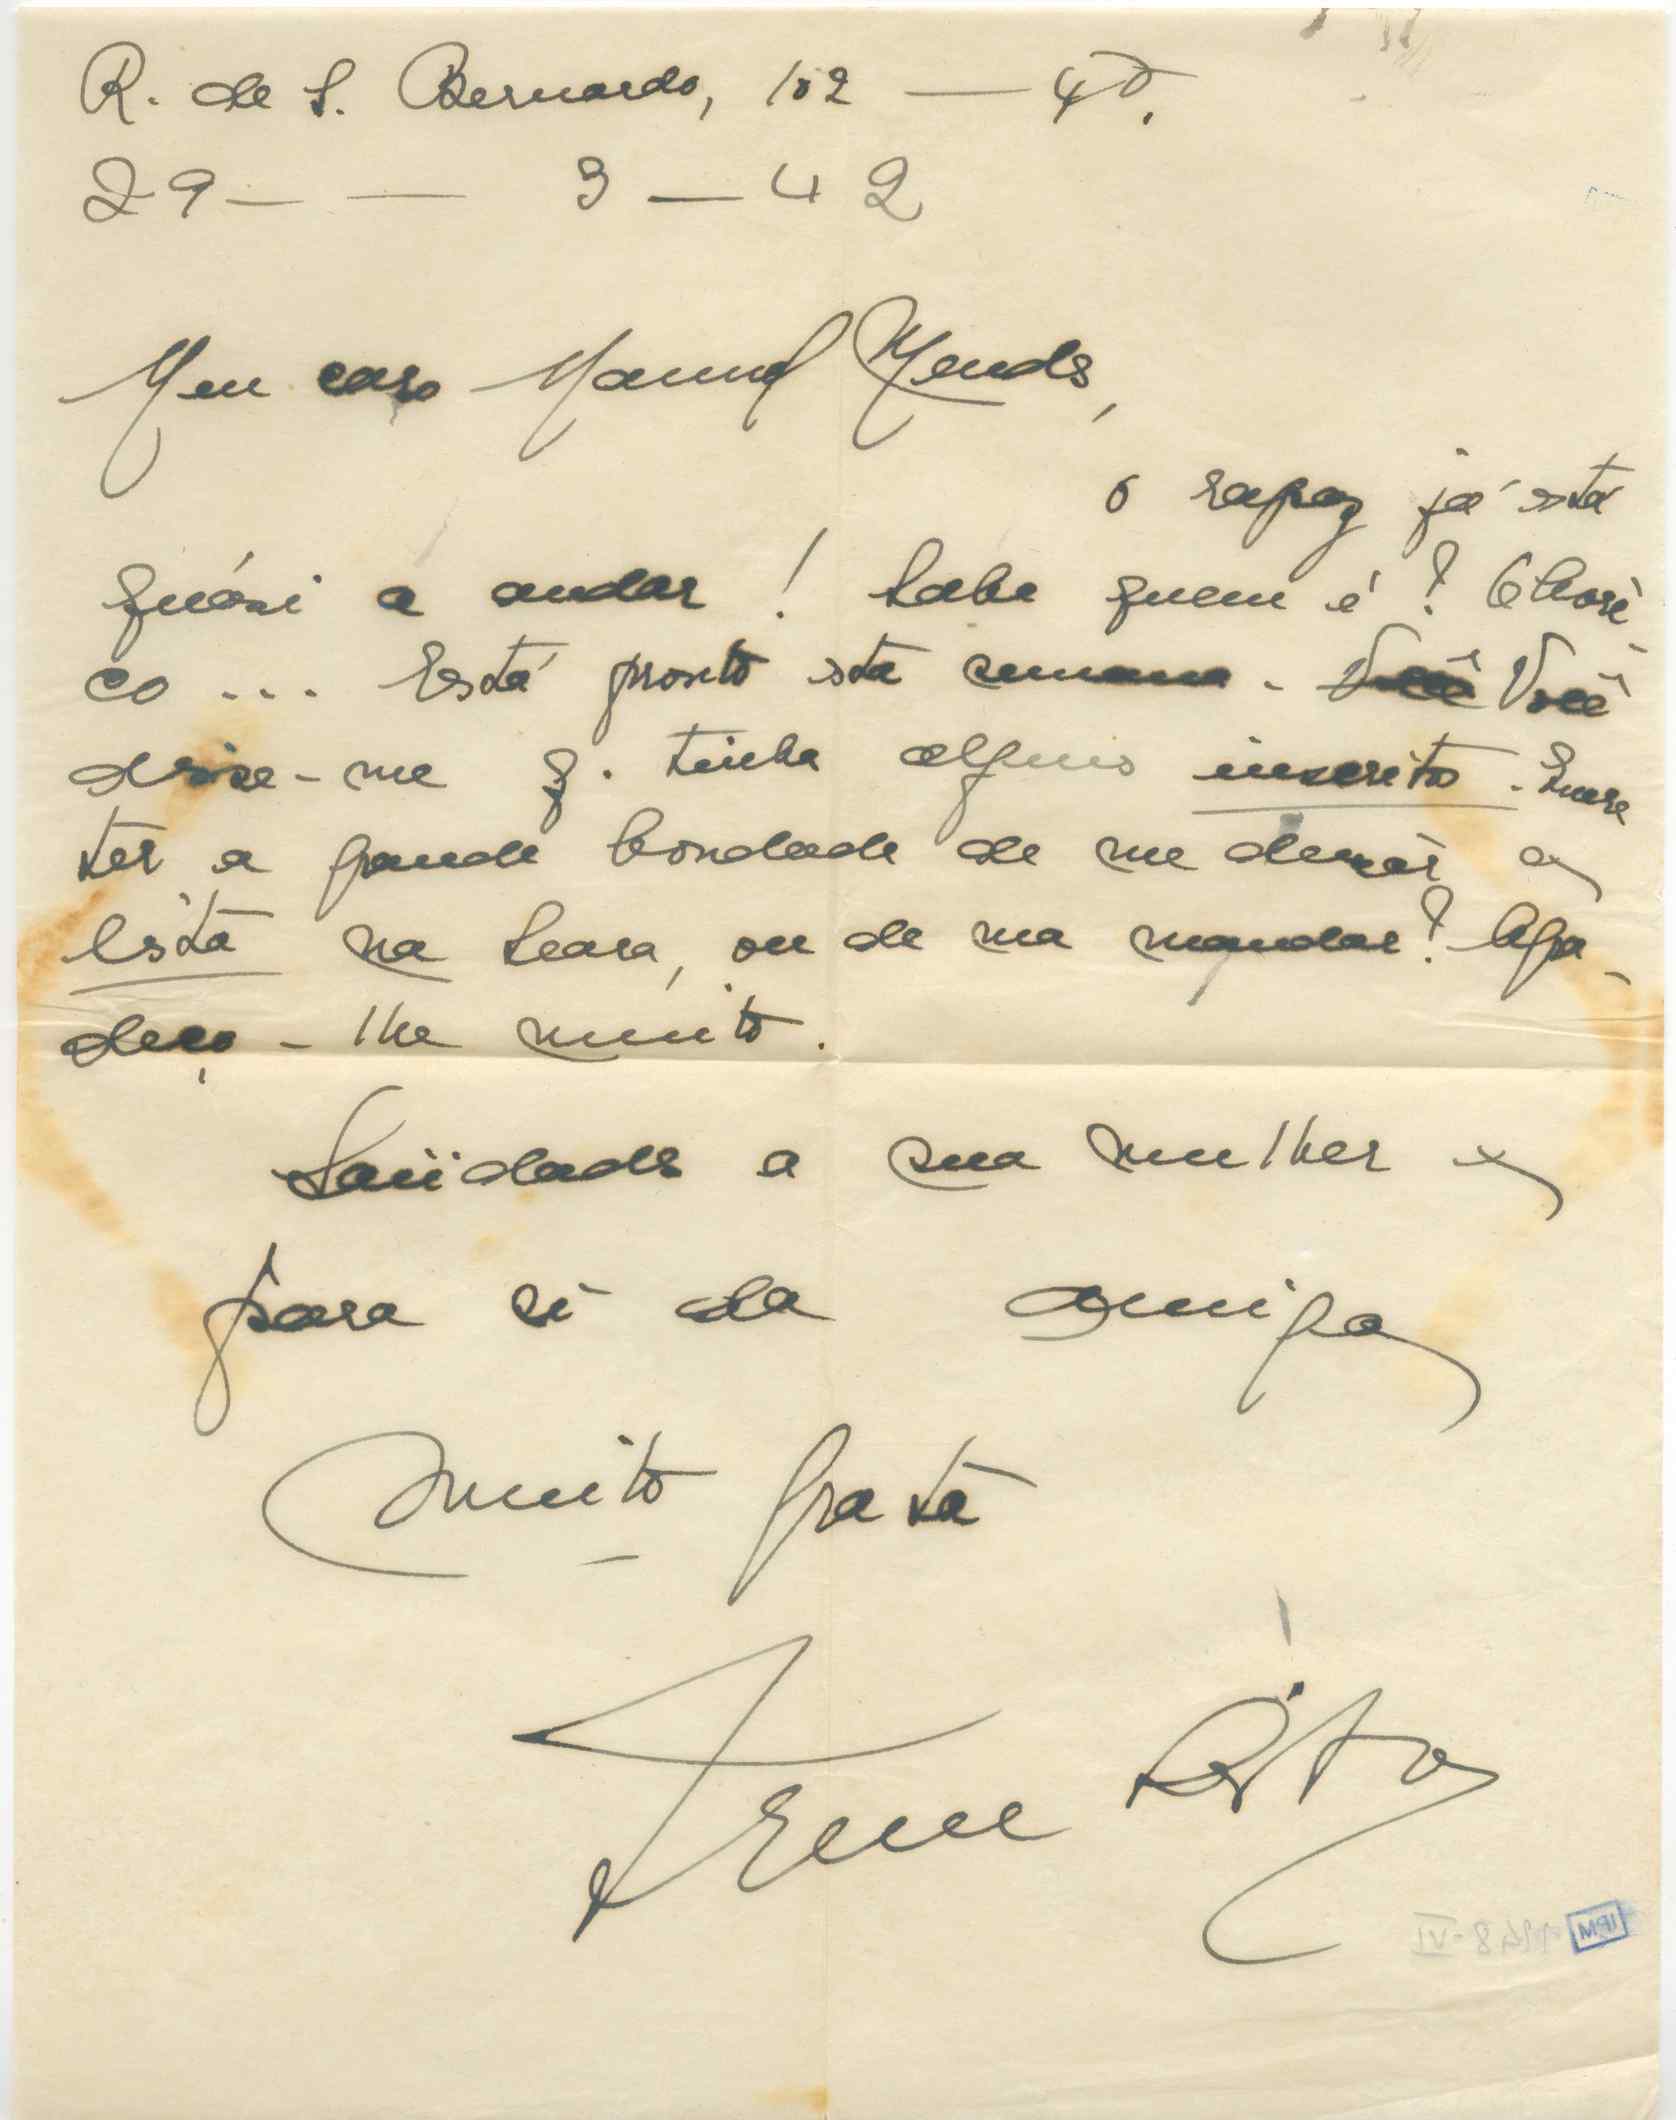 R. de S. Bernardo, 102 — 4º.
29 — — 3 — 42
Meu caro Manuel Mendes,
o rapaz já está
quási a andar! Sabe quem é?
co... Está pronto esta semana. Você Você
disse-me q. tinha alguns inscritos. Quere
ter a grande bondade de me deixar a
lista na Seara, ou de ma mandar? Agra-
deço-lhe muito.
Saüdades a sua mulher e
para si da amiga
muito grata
Irene
IPM 1948-VI